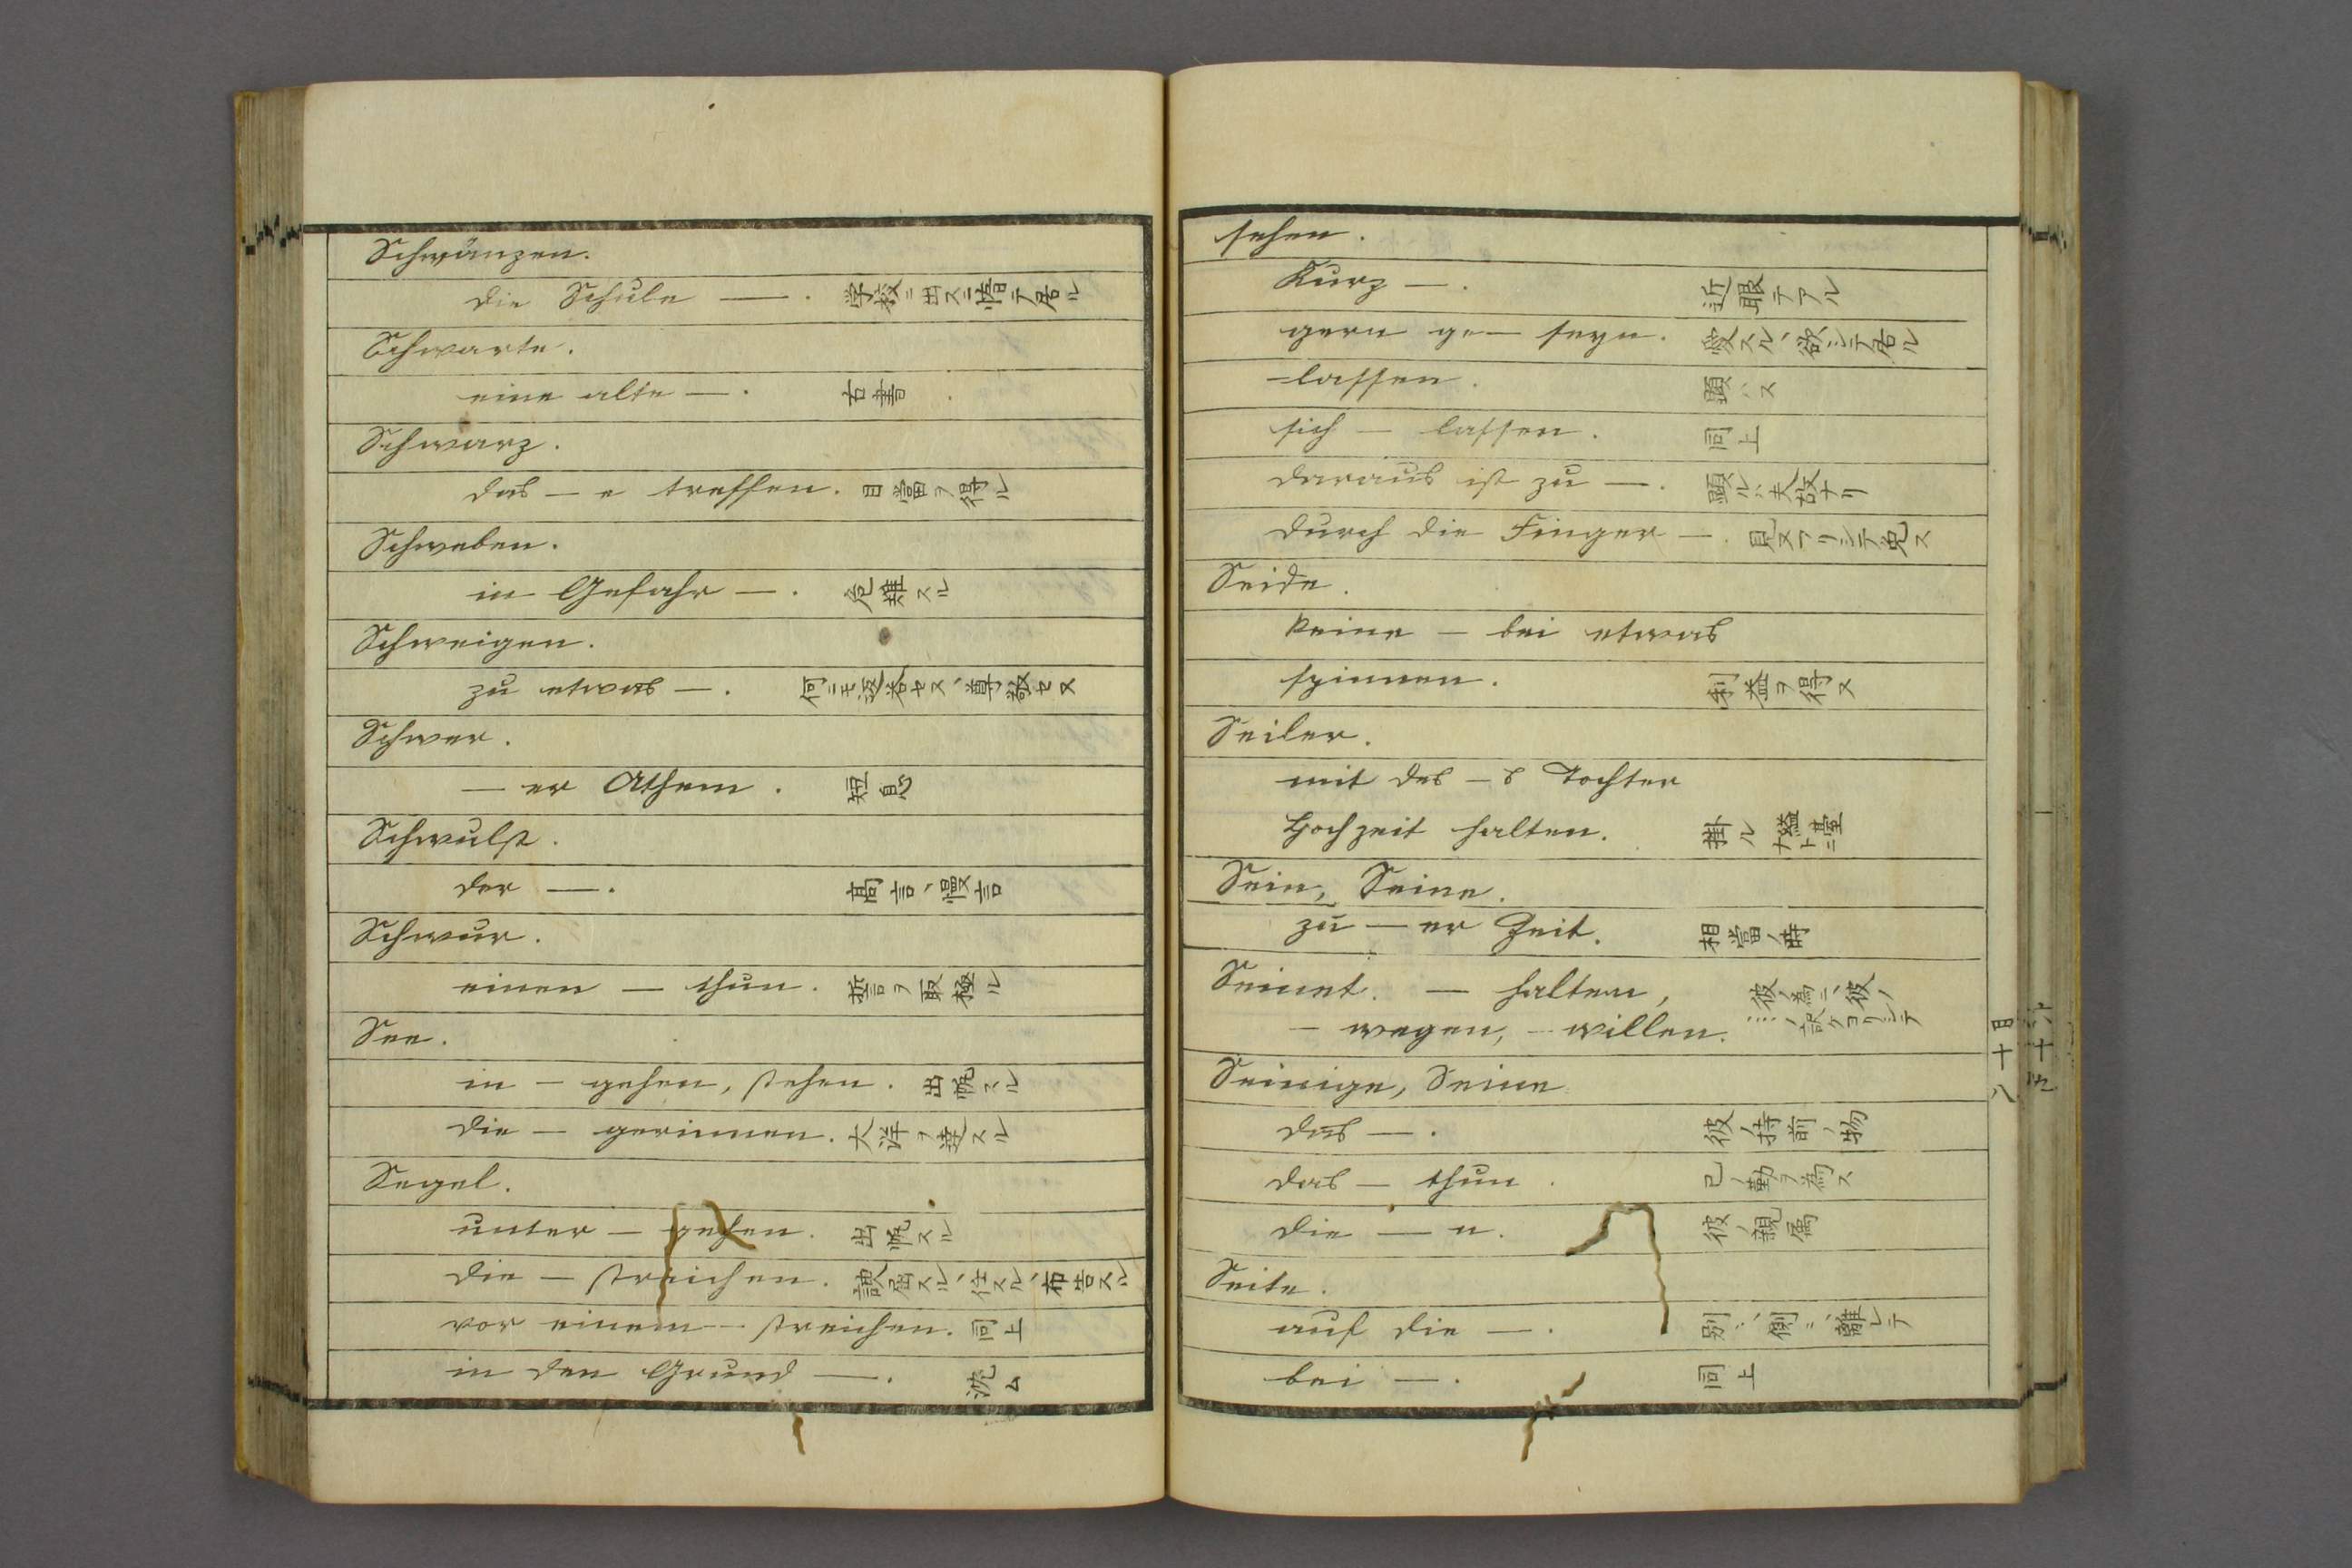 Schwänzen.
die Schule —. 学校ニ出スニ惰テ居ル
Schwarte.
eine alte —. 古書.
Schwarz.
das — e treffen. 目當ヲ得ル
Schweben.
in Gefahr —. 危難スル
Schweigen.
zu etwas —. 何ニモ返答セス、尊敬セス
Schwer.
— er Athem. 短息
Schwulst.
der —. 高言、慢言
Schwur.
einen — thun. 誓言ヲ取極ル
See.
in — gehen, stehen. 出帆スル
die — gewinnen. 大洋ヲ達スル
Segel.
unter — gehen. 出帆スル
die — streichen. スル、任スル、布告スル
vor einem — streichen. 同上
in den Grund —. 沈ム
sehen.
Kurz —. 近眼テアル
gern ge— seyn. 愛スル、欲シテ居ル
— lassen. 顕ハス
sich — lassen. 同上
daraus ist zu —. 顕ルハ夫故ナリ
durch die Finger —. 見ヌフリシテ免ス
Seide.
keine — bei etwas
spinnen. 利益ヲ得ス
Seiler.
mit des — s Tochter
Hochzeit halten. 掛ル
Sein, Seine.
zu — er Zeit. 相當ノ時
Seinet. — halten, 彼ノ為ニ、彼ノ
— wegen, — willen.
Seinige, Seine
das —. 彼ノ持前ノ物
das — thun. 己ノ勤ヲ為ス
die — n. 彼ノ親属
Seite.
auf die —. 別ニ、側ニ、離レテ
bei —. 同上